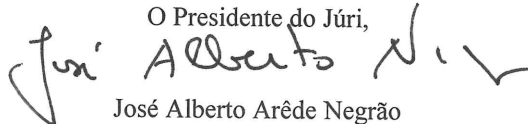 O Presidente do Júri,
José Alberto N
José Alberto Arêde Negrão